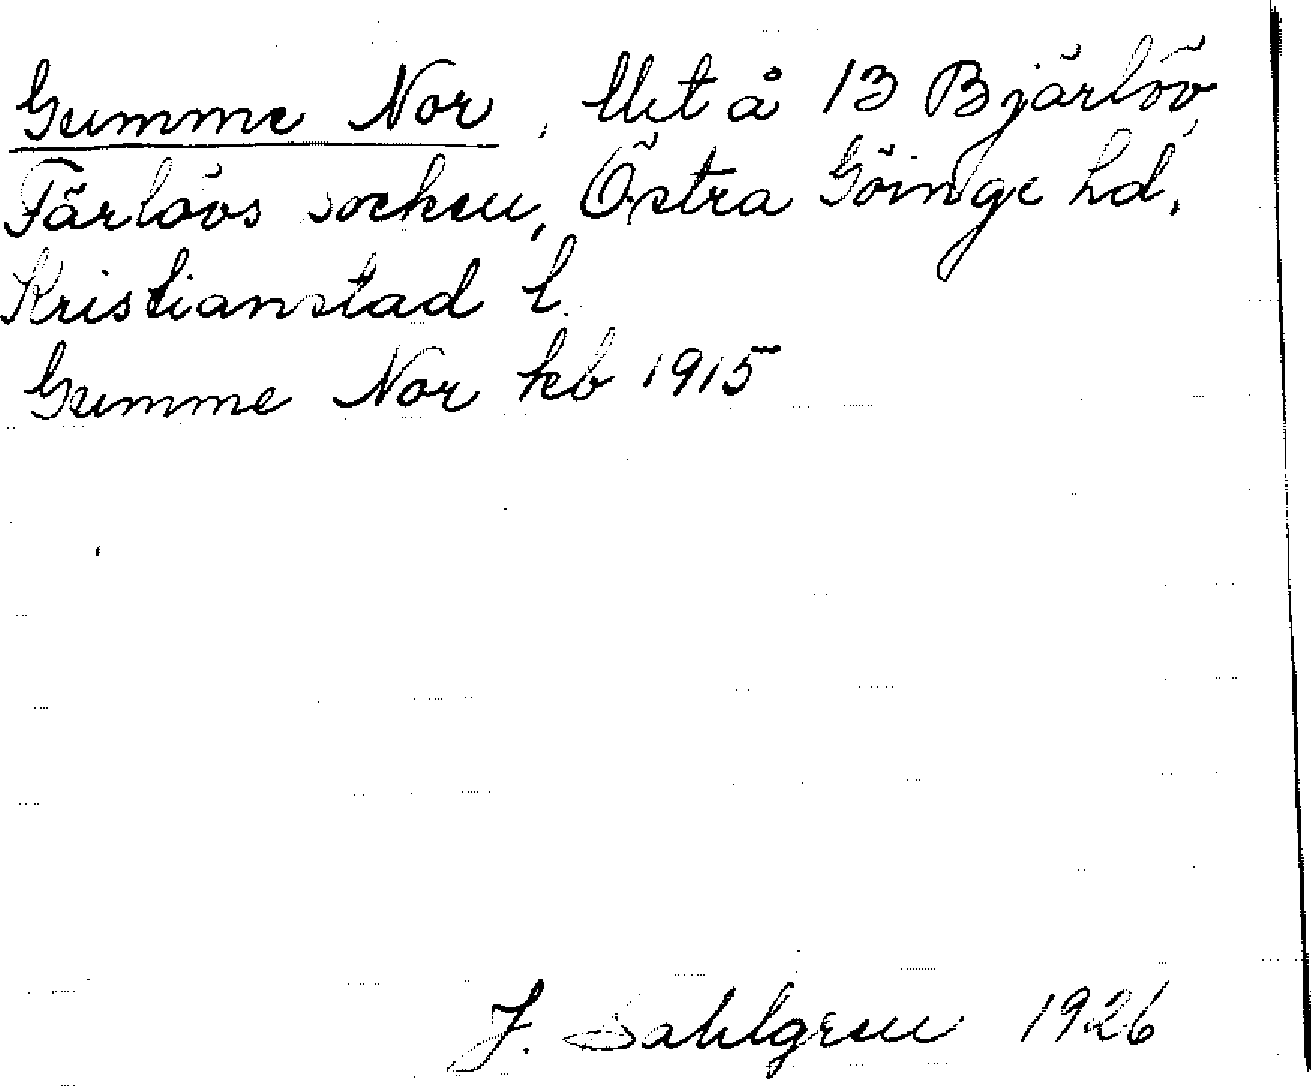 Gumme Nor, Utet å 13 Bjärlöv,
Färlövs socken, Östra Göinge hd,
Kristianstad l.
Gumme Nor kb 1915
J. Sahlgren 1926